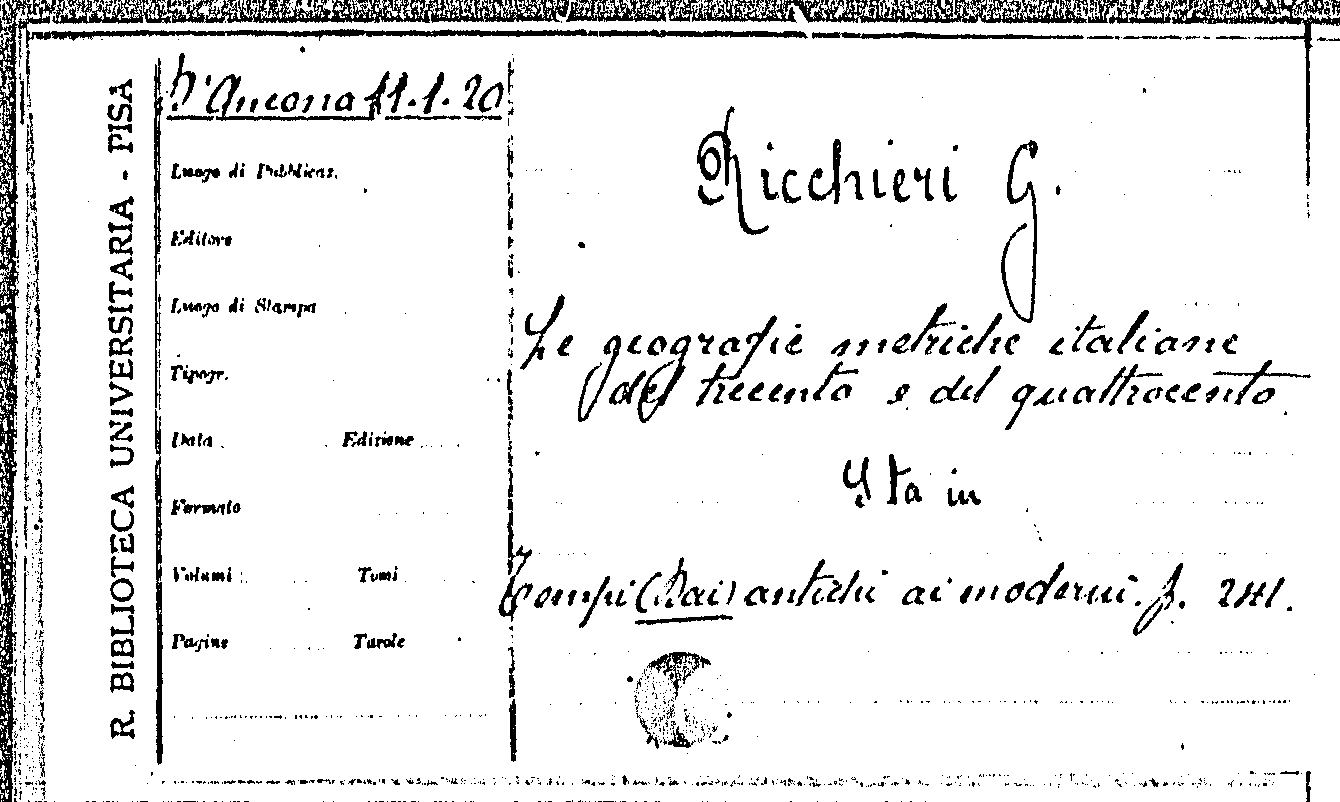 R. BIBLIOTECA UNIVERSITARIA - PISA
D'Ancona 11.1.20
Luogo di Pubblicaz.
Editore
Luogo di Stampa
Tipogr.
Data Edizione
Formato
Volumi Tomi
Pagine Tavole
Ricchieri G.
Le geografie metriche italiane
del trecento e del quattrocento
Sta in
Tempi (Dai) antichi ai moderni. p. 241.